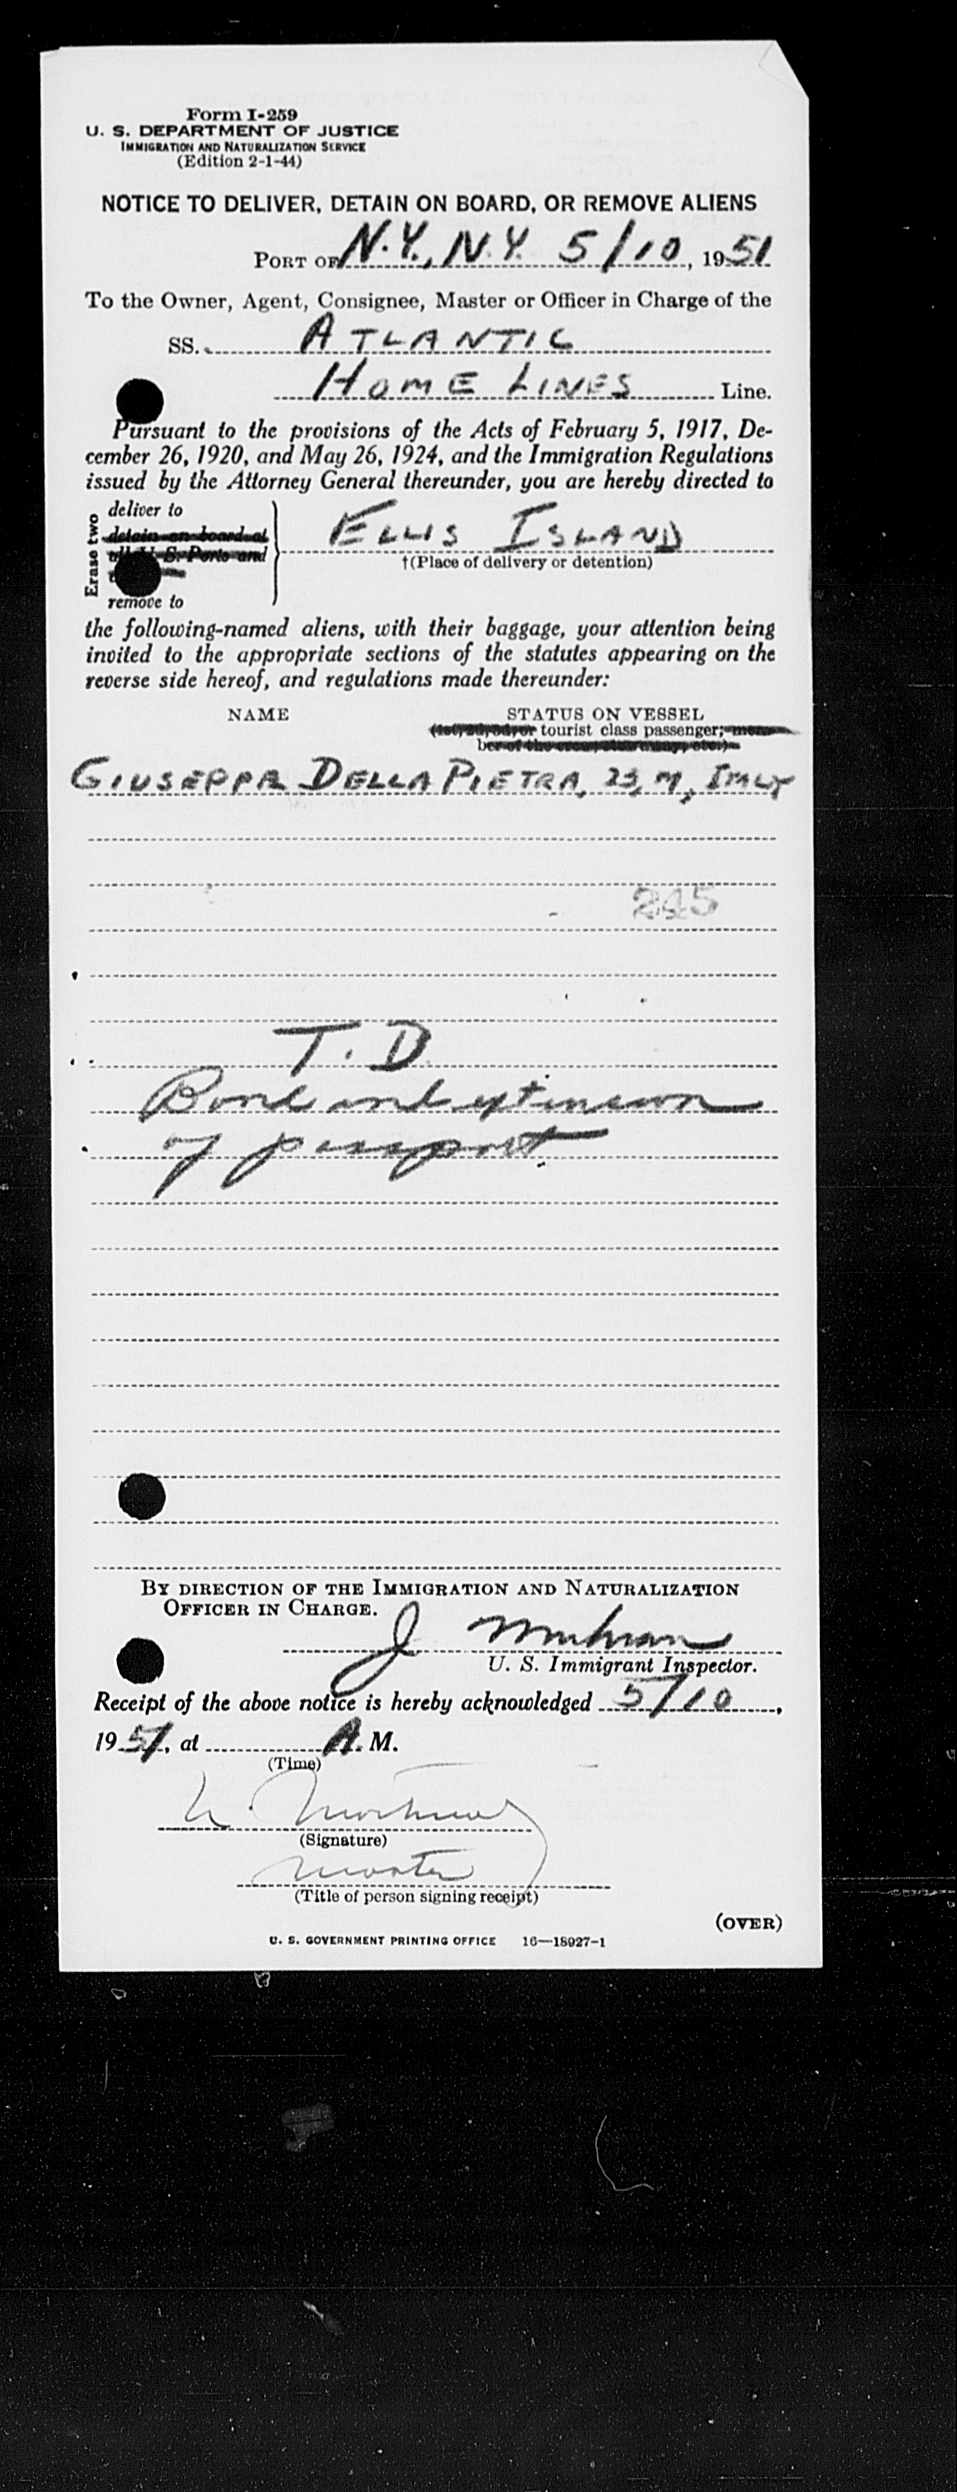 Form I-259
U. S. DEPARTMENT OF JUSTICE
IMMIGRATION AND NATURALIZATION SERVICE
(Edition 2-1-44)
NOTICE TO DELIVER, DETAIN ON BOARD, OR REMOVE ALIENS
PORT OF N.Y., N.Y. 5/10, 1951
To the Owner, Agent, Consignee, Master or Officer in Charge of the
SS. ATLANTIC
HOME LINES Line.
Pursuant to the provisions of the Acts of February 5, 1917, De-
cember 26, 1920, and May 26, 1924, and the Immigration Regulations
issued by the Attorney General thereunder, you are hereby directed to
Erase two
deliver to
detain on board at
all U. S. Ports and
remove to
ELLIS ISLAND
†(Place of delivery or detention)
the following-named aliens, with their baggage, your attention being
invited to the appropriate sections of the statutes appearing on the
reverse side hereof, and regulations made thereunder:
NAME STATUS ON VESSEL
tourist class passenger; mem-
ber of the crew, etc.)
GIUSEPPA DELLA PIETRA, 23, M, ITALY
T. D
Bond and extension
of passport
BY DIRECTION OF THE IMMIGRATION AND NATURALIZATION
OFFICER IN CHARGE.
J
U. S. Immigrant Inspector.
Receipt of the above notice is hereby acknowledged 5/10,
1951, at A. M.
(Time)
(Signature)
Master
(Title of person signing receipt)
(OVER)
U. S. GOVERNMENT PRINTING OFFICE 16—18027-1